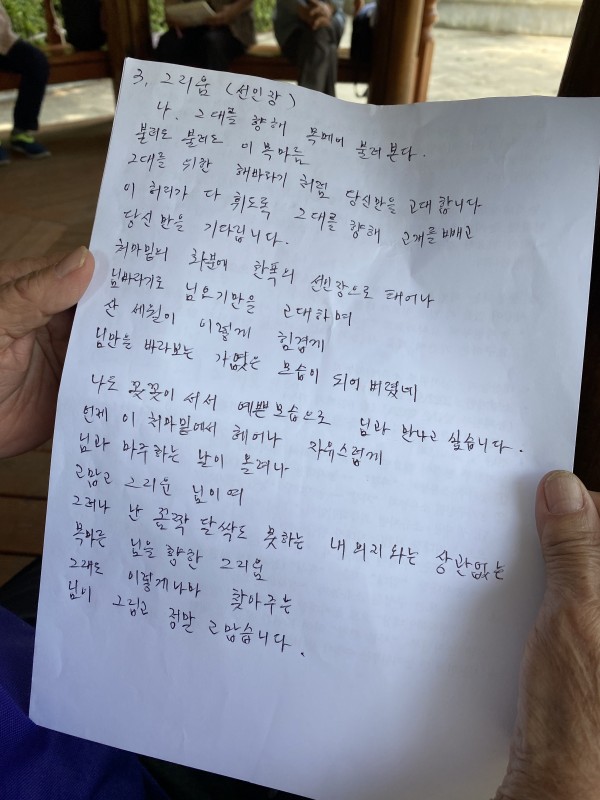 3, 그리움 (선인장)
나. 그대를 향해 목메어 불러본다.
불러도 불러도 이 목마름
그대를 위한 해바라기 처럼 당신만을 고대합니다
이 허리가 다 휘도록 그대를 향해 고개를 빼고
당신만을 기다립니다.
처마밑의 화분에 한폭의 선인장으로 태어나
님바라기로 님오기만을 고대하며
산 세월이 이렇게 힘겹게
님만을 바라보는 가엾은 모습이 되어 버렸네
나도 꼿꼿이 서서 예쁜모습으로 님과 만나고 싶습니다.
언제 이 처마밑에서 헤어나 자유스럽게
님과 마주하는 날이 올려나
고맙고 그리운 님이여
그러나 난 꼼짝 달싹도 못하는 내 의지와는 상관없는
목마른 님을 향한 그리움
그래도 이렇게나마 찾아주는
님이 그립고 정말 고맙습니다.